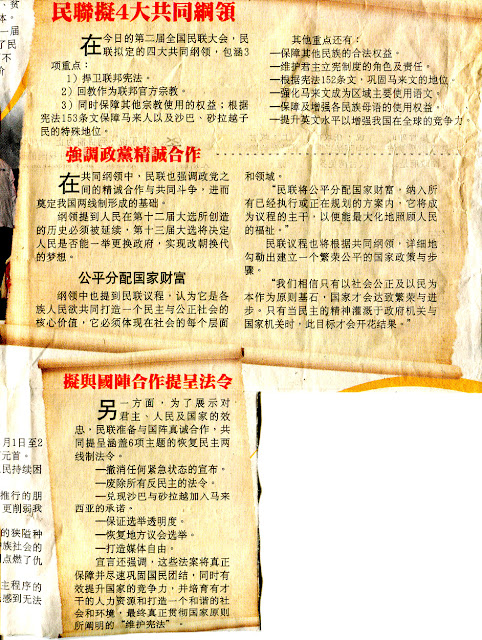 民聯擬4大共同綱領
在今日的第二届全国民联大会，民
联拟定的四大共同纲领，包涵3
项重点：
1）捍卫联邦宪法。
2）回教作为联邦官方宗教。
3）同时保障其他宗教使用的权益；根据
宪法153条文保障马来人以及沙巴、砂拉越子
民的特殊地位。
其他重点还有：
—保障其他民族的合法权益。
—维护君主立宪制度的角色及责任。
—根据宪法152条文，巩固马来文的地位。
—强化马来文成为区域主要使用语文。
—保障及增强各民族母语的使用权益。
—提升英文水平以增强我国在全球的竞争力。
強調政黨精誠合作
在共同纲领中，民联也强调政党之
间的精诚合作与共同斗争，进而
奠定我国两线制形成的基础。
纲领提到人民在第十二届大选所创造
的历史必须被延续，第十三届大选将决定
人民是否能一举更换政府，实现改朝换代
的梦想。
公平分配国家财富
纲领中也提到民联议程，认为它是各
族人民欲共同打造一个民主与公正社会的
核心价值，它必须体现在社会的每个层面
和领域。
“民联将公平分配国家财富，纳入所
有已经执行或正在规划的方案内，它将成
为议程的主干，以便能最大化地照顾人民
的福祉。”
民联议程也将根据共同纲领，详细地
勾勒出建立一个繁荣公平的国家政策与步
骤。
“我们相信只有以社会公正及以民为
本作为原则基石，国家才会达致繁荣与进
步。只有当民主的精神灌溉于政府机关与
国家机关时，此目标才会开花结果。”
擬與國陣合作提呈法令
另一方面，为了展示对
君主、人民及国家的效
忠，民联准备与国阵真诚合作，共
同提呈涵盖6项主题的恢复民主两
线制法令。
—撤消任何紧急状态的宣布。
—废除所有反民主的法令。
—兑现沙巴与砂拉越加入马来
西亚的承诺。
—保证选举透明度。
—恢复地方议会选举。
—打造媒体自由。
宣言还强调，这些法案将真正
保障并尽速巩固国民团结，同时有
效提升国家的竞争力，并培育有才
干的人力资源和打造一个和谐的社
会和环境，最终真正贯彻国家原则
所阐明的“维护宪法”。
月1日至2
元首。
民持续困
推行的朋
更削弱我
的狭隘种
族社会的
点燃了仇
主程序的
感到无法